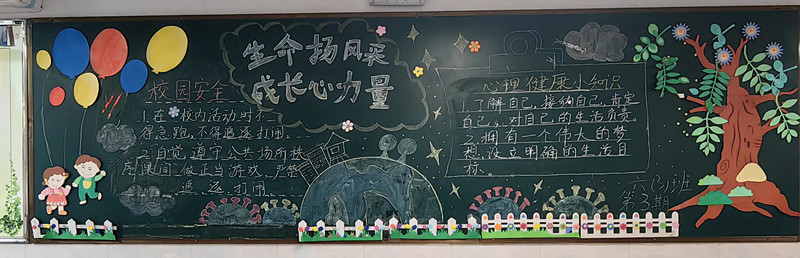 生命扬风采
成长心力量
校园安全
1.在校内活动时不
得急跑,不得追逐打闹。
2.自觉遵守公共场所秩
序课间做正当游戏,严禁
追逐打闹。
心理健康小知识
1.了解自己,接纳自己,肯定
自己,对自己的生活负责。
2.拥有一个伟大的梦
想,设立明确的生活目
标。
六(1)班
第3期